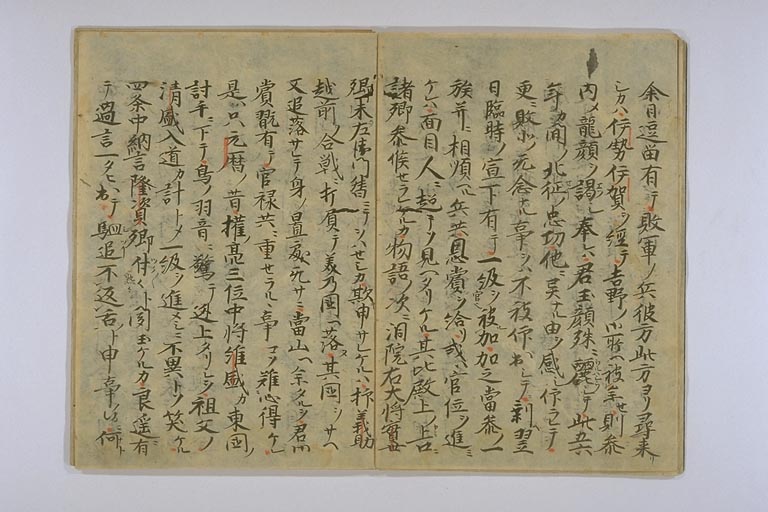 余日逗留有テ敗軍ノ兵彼方此方ヨリ尋来リ
シカハ伊勢伊賀ヲ経テ吉野ノ御所ヘ被参セ則参
内メ龍顔ヲ謁シ奉シハ君玉顔殊ニ麗クシテ此五六
年カ間ノ北征ノ忠功他ニ異ナル由ヲ感シ仰ラレテ
更ニ敗北ノ無念ナル事ヲハ不被仰出シテ剰ヘ翌
日臨時ノ宣下有テ一級ヲ被加加之當参ノ一
族并ニ相順ヘル兵共恩賞ヲ給リ或ハ官位ヲ進ミ
ケレハ面目人ニ超テソ見ヘタリケル其比殿上ノ上口ニ
諸卿参候セラレケルカ物語ノ次ニ洞院右大将實世
卿未左衛門督ニテヲハセシカ欺申サレケルハ抑義助
越前ノ合戦ニ打負テ美乃国ヘ落ヌ其国ヲサヘ
又追落サレテ身ノ置處ナサニ當山ヘ参タルヲ君御
賞翫有テ官禄共ニ重セラルヽ事コソ難心得ケレ
是ハ只元暦ノ昔権亮三位中将維盛カ東国ノ
討手ニ下テ鳥ノ羽音ニ驚テ逃上タリシヲ祖父ノ
清盛入道カ計トメ一級ヲ進メシニ不異トソ笑ケル
四条中納言隆資卿付々ト聞玉ケルカ良遥ニ有
テ過言一タヒ出テ駟追不返舌ト申事ハ何